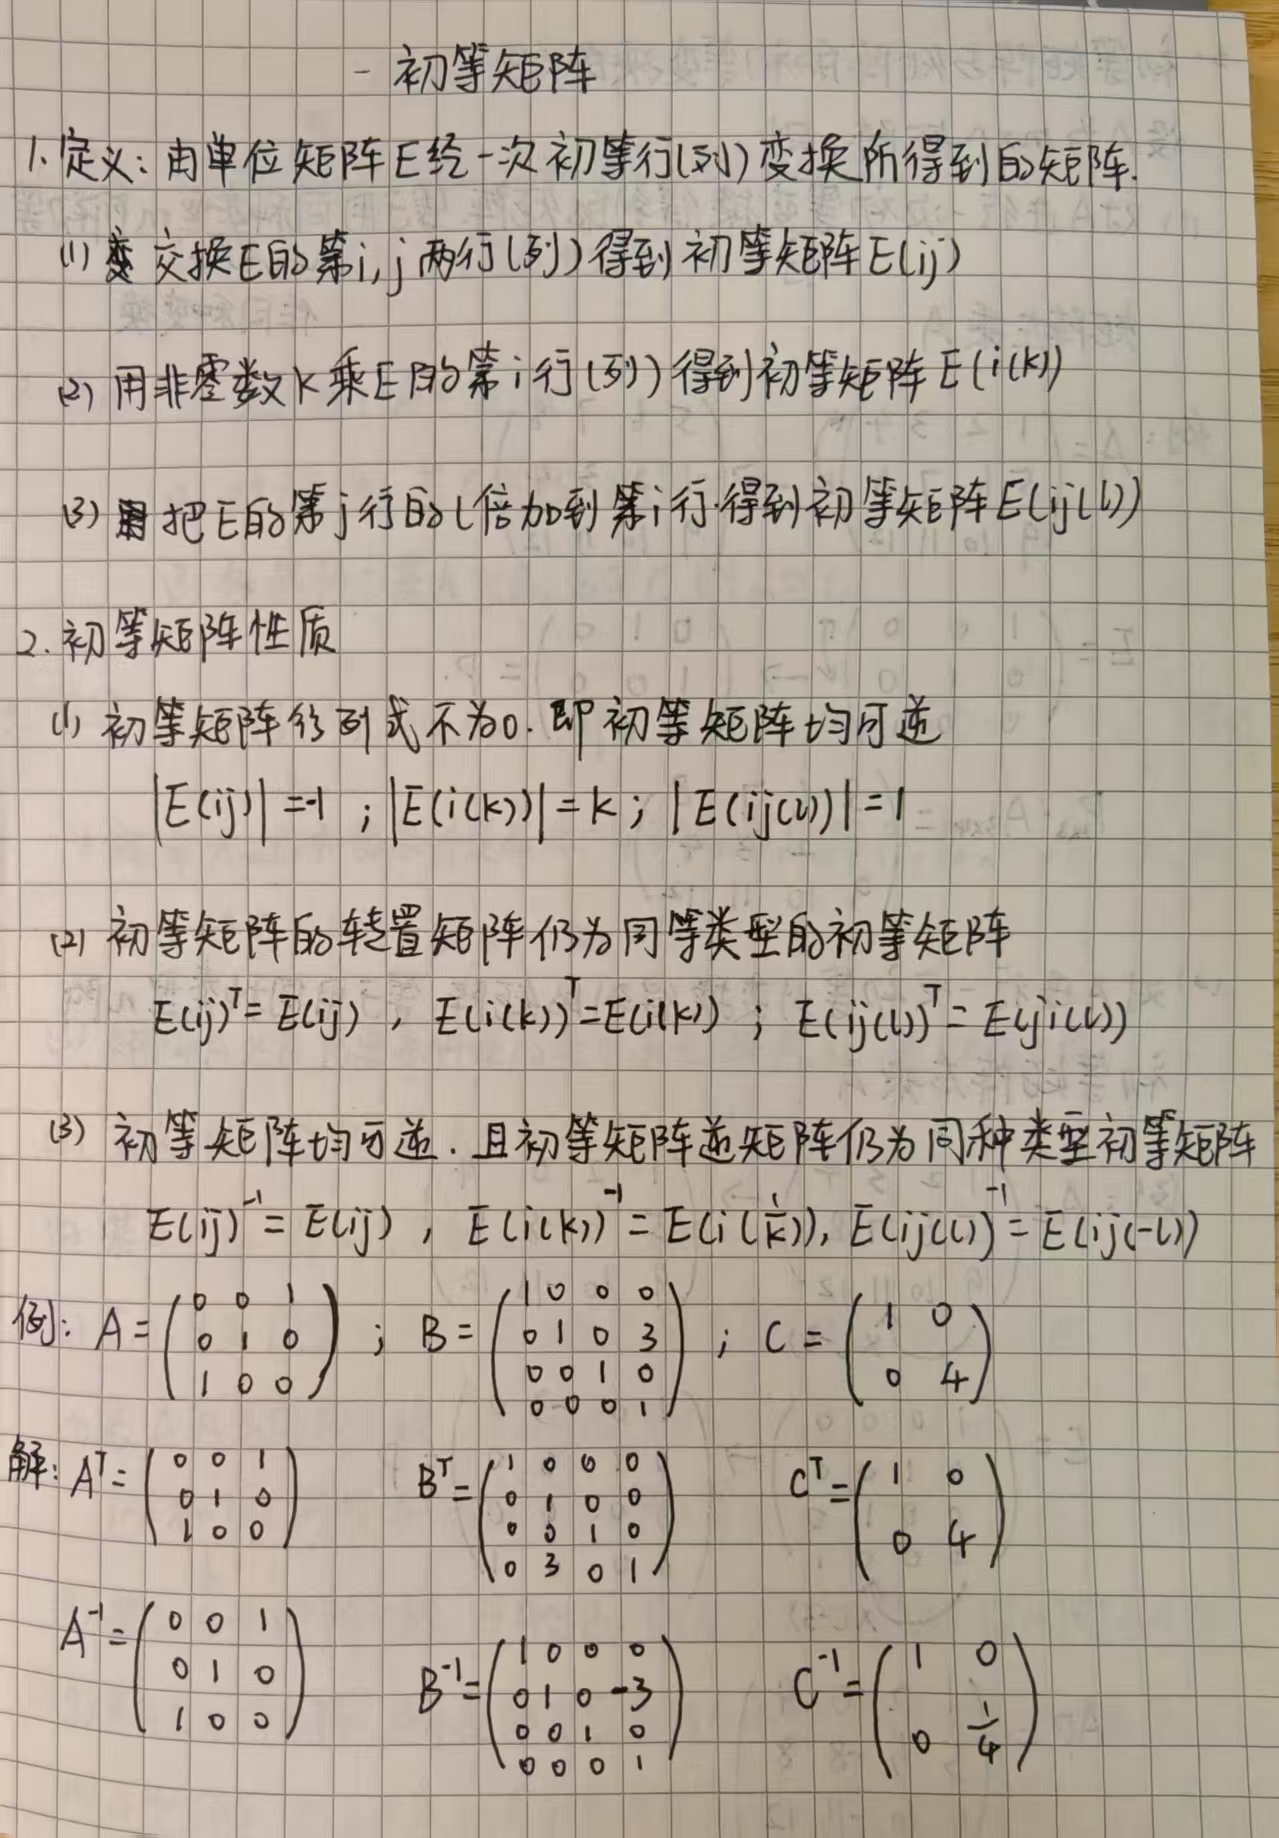 一 初等矩阵
1. 定义: 由单位矩阵E经一次初等行(列)变换所得到的矩阵.
(1) 交换E的第i,j两行(列)得到初等矩阵E(ij)
(2) 用非零数k乘E的第i行(列)得到初等矩阵E(i(k))
(3) 把E的第j行的l倍加到第i行.得到初等矩阵E(ij(l))
2. 初等矩阵性质
(1) 初等矩阵行列式不为0. 即初等矩阵均可逆
|E(ij)| = -1 ; |E(i(k))| = k ; |E(ij(l))| = 1
(2) 初等矩阵的转置矩阵仍为同等类型的初等矩阵
E(ij)ᵀ = E(ij) , E(i(k))ᵀ = E(i(k)) ; E(ij(l))ᵀ = E(ji(l))
(3) 初等矩阵均可逆. 且初等矩阵逆矩阵仍为同种类型初等矩阵
E(ij)⁻¹ = E(ij) , E(i(k))⁻¹ = E(i(1/k)), E(ij(l))⁻¹ = E(ij(-l))
例: A = (0 0 1 / 0 1 0 / 1 0 0) ; B = (1 0 0 0 / 0 1 0 3 / 0 0 1 0 / 0 0 0 1) ; C = (1 0 / 0 4)
解: Aᵀ = (0 0 1 / 0 1 0 / 1 0 0) Bᵀ = (1 0 0 0 / 0 1 0 0 / 0 0 1 0 / 0 3 0 1) Cᵀ = (1 0 / 0 4)
A⁻¹ = (0 0 1 / 0 1 0 / 1 0 0) B⁻¹ = (1 0 0 0 / 0 1 0 -3 / 0 0 1 0 / 0 0 0 1) C⁻¹ = (1 0 / 0 1/4)